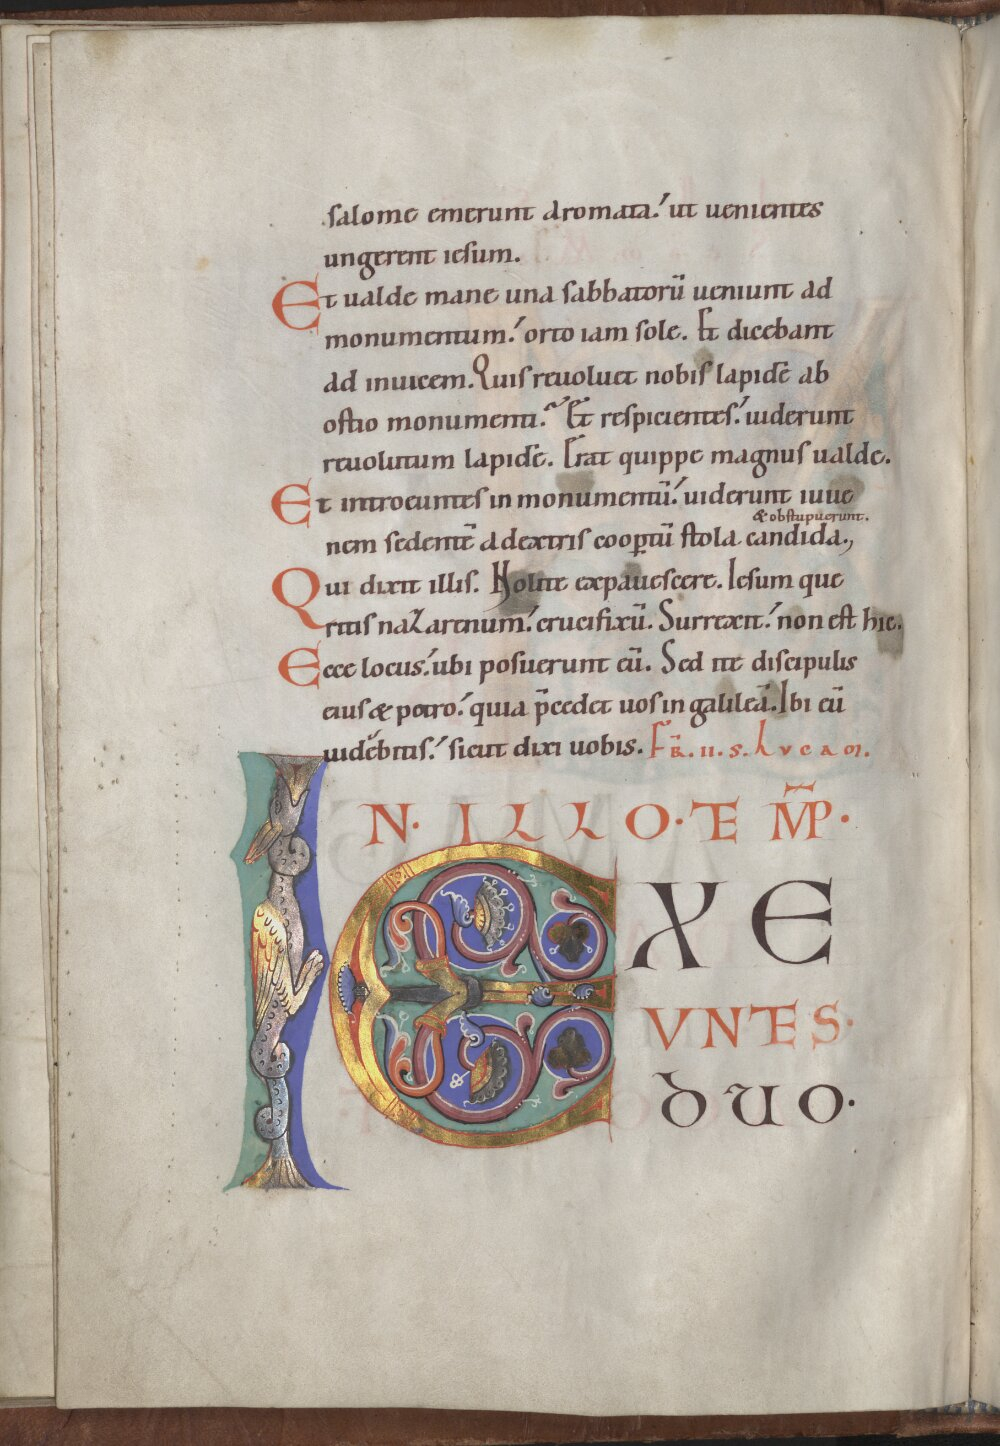 salome emerunt aromata. ut uenientes
ungerent iesum.
Et ualde mane una sabbatorū ueniunt ad
monumentum. orto iam sole. Et dicebant
ad inuicem. Quis reuoluet nobis lapidē ab
ostio monumenti. Et respicientes. uiderunt
reuolutum lapidē. Erat quippe magnus ualde.
Et introeuntes in monumentū. uiderunt iuue
& obstupuerunt.
nem sedentē a dextris coopertū stola candida,
Qui dixit illis. Nolite expauescere. Iesum que
ritis naZarenum. crucifixū. Surrexit. non est hic.
Ecce locus. ubi posuerunt eū. Sed ite discipulis
eius & petro. quia p̄cedet uos in galileā. Ibi eū
uidebitis. sicut dixi uobis. FR̄. II. S. LVCAM.
IN. ILLO. TEM̄P.
EXE
VNTES.
DUO.